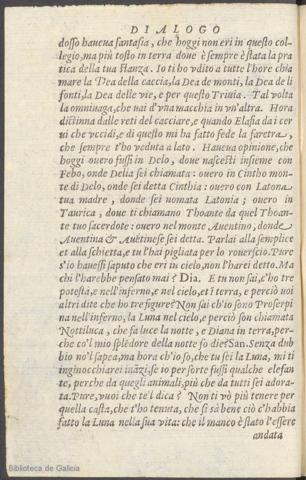 DIALOGO
dosso haueua fantasia, che hoggi non eri in questo col-
legio, ma più tosto in terra doue è sempre è stata la pra
tica della tua stanza. Io ti ho vdito a tutte l'hore chia
mare la Dea della caccia, la Dea de monti, la Dea de li
fonti, la Dea delle vie, e per questo Triuia. Tal volta
la omniuaga, che vai d'vna macchia in vn'altra. Hora
dictinna dalle reti del cacciare, e quando Elafia da i cer
ui che vccidi, e di questo mi ha fatto fede la faretra,
che sempre t'ho veduta a lato. Haueua opinione, che
hoggi ouero fussi in Delo, doue nascesti insieme con
Febo, onde Delia sei chiamata: ouero in Cintho mon-
te di Delo, onde sei detta Cinthia: ouero con Latona
tua madre, donde sei nomata Latonia; ouero in
Taurica, doue ti chiamano Thoante da quel Thoan-
te tuo sacerdote: ouero nel monte Auentino, donde
Auentina & Auētinese sei detta. Parlai alla semplice
et alla schietta, e tu l'hai pigliata per lo rouerscio. Pure
s'io hauessi saputo che eri in cielo, non l'harei detto. Ma
chi l'harebbe pensato mai? Dia. E tu non sai, c'ho tre
potestà, e nell'inferno, e nel cielo, et i terra, e perciò uoi
altri dite che ho tre figure? Non sai ch'io sono Proserpi
na nell'inferno, la Luna nel cielo, e perciò son chiamata
Nottiluca, che fa luce la notte, e Diana in terra, per-
che co'l mio splēdore della notte fo die? San. Senza dub
bio no'l sapea, ma hora ch'io so, che tu sei la Luna, mi ti
inginocchiarei ināzi, se io per sorte fussi qualche elefan
te, perche da quegli animali, più che da tutti sei adora-
ta. Pure, vuoi che te'l dica? Non ti vò più tenere per
quella casta, che t'ho tenuta, che si sà bene ciò c'habbia
fatto la Luna nella sua vita: che il manco è stato l'essere
andata
Biblioteca de Galicia